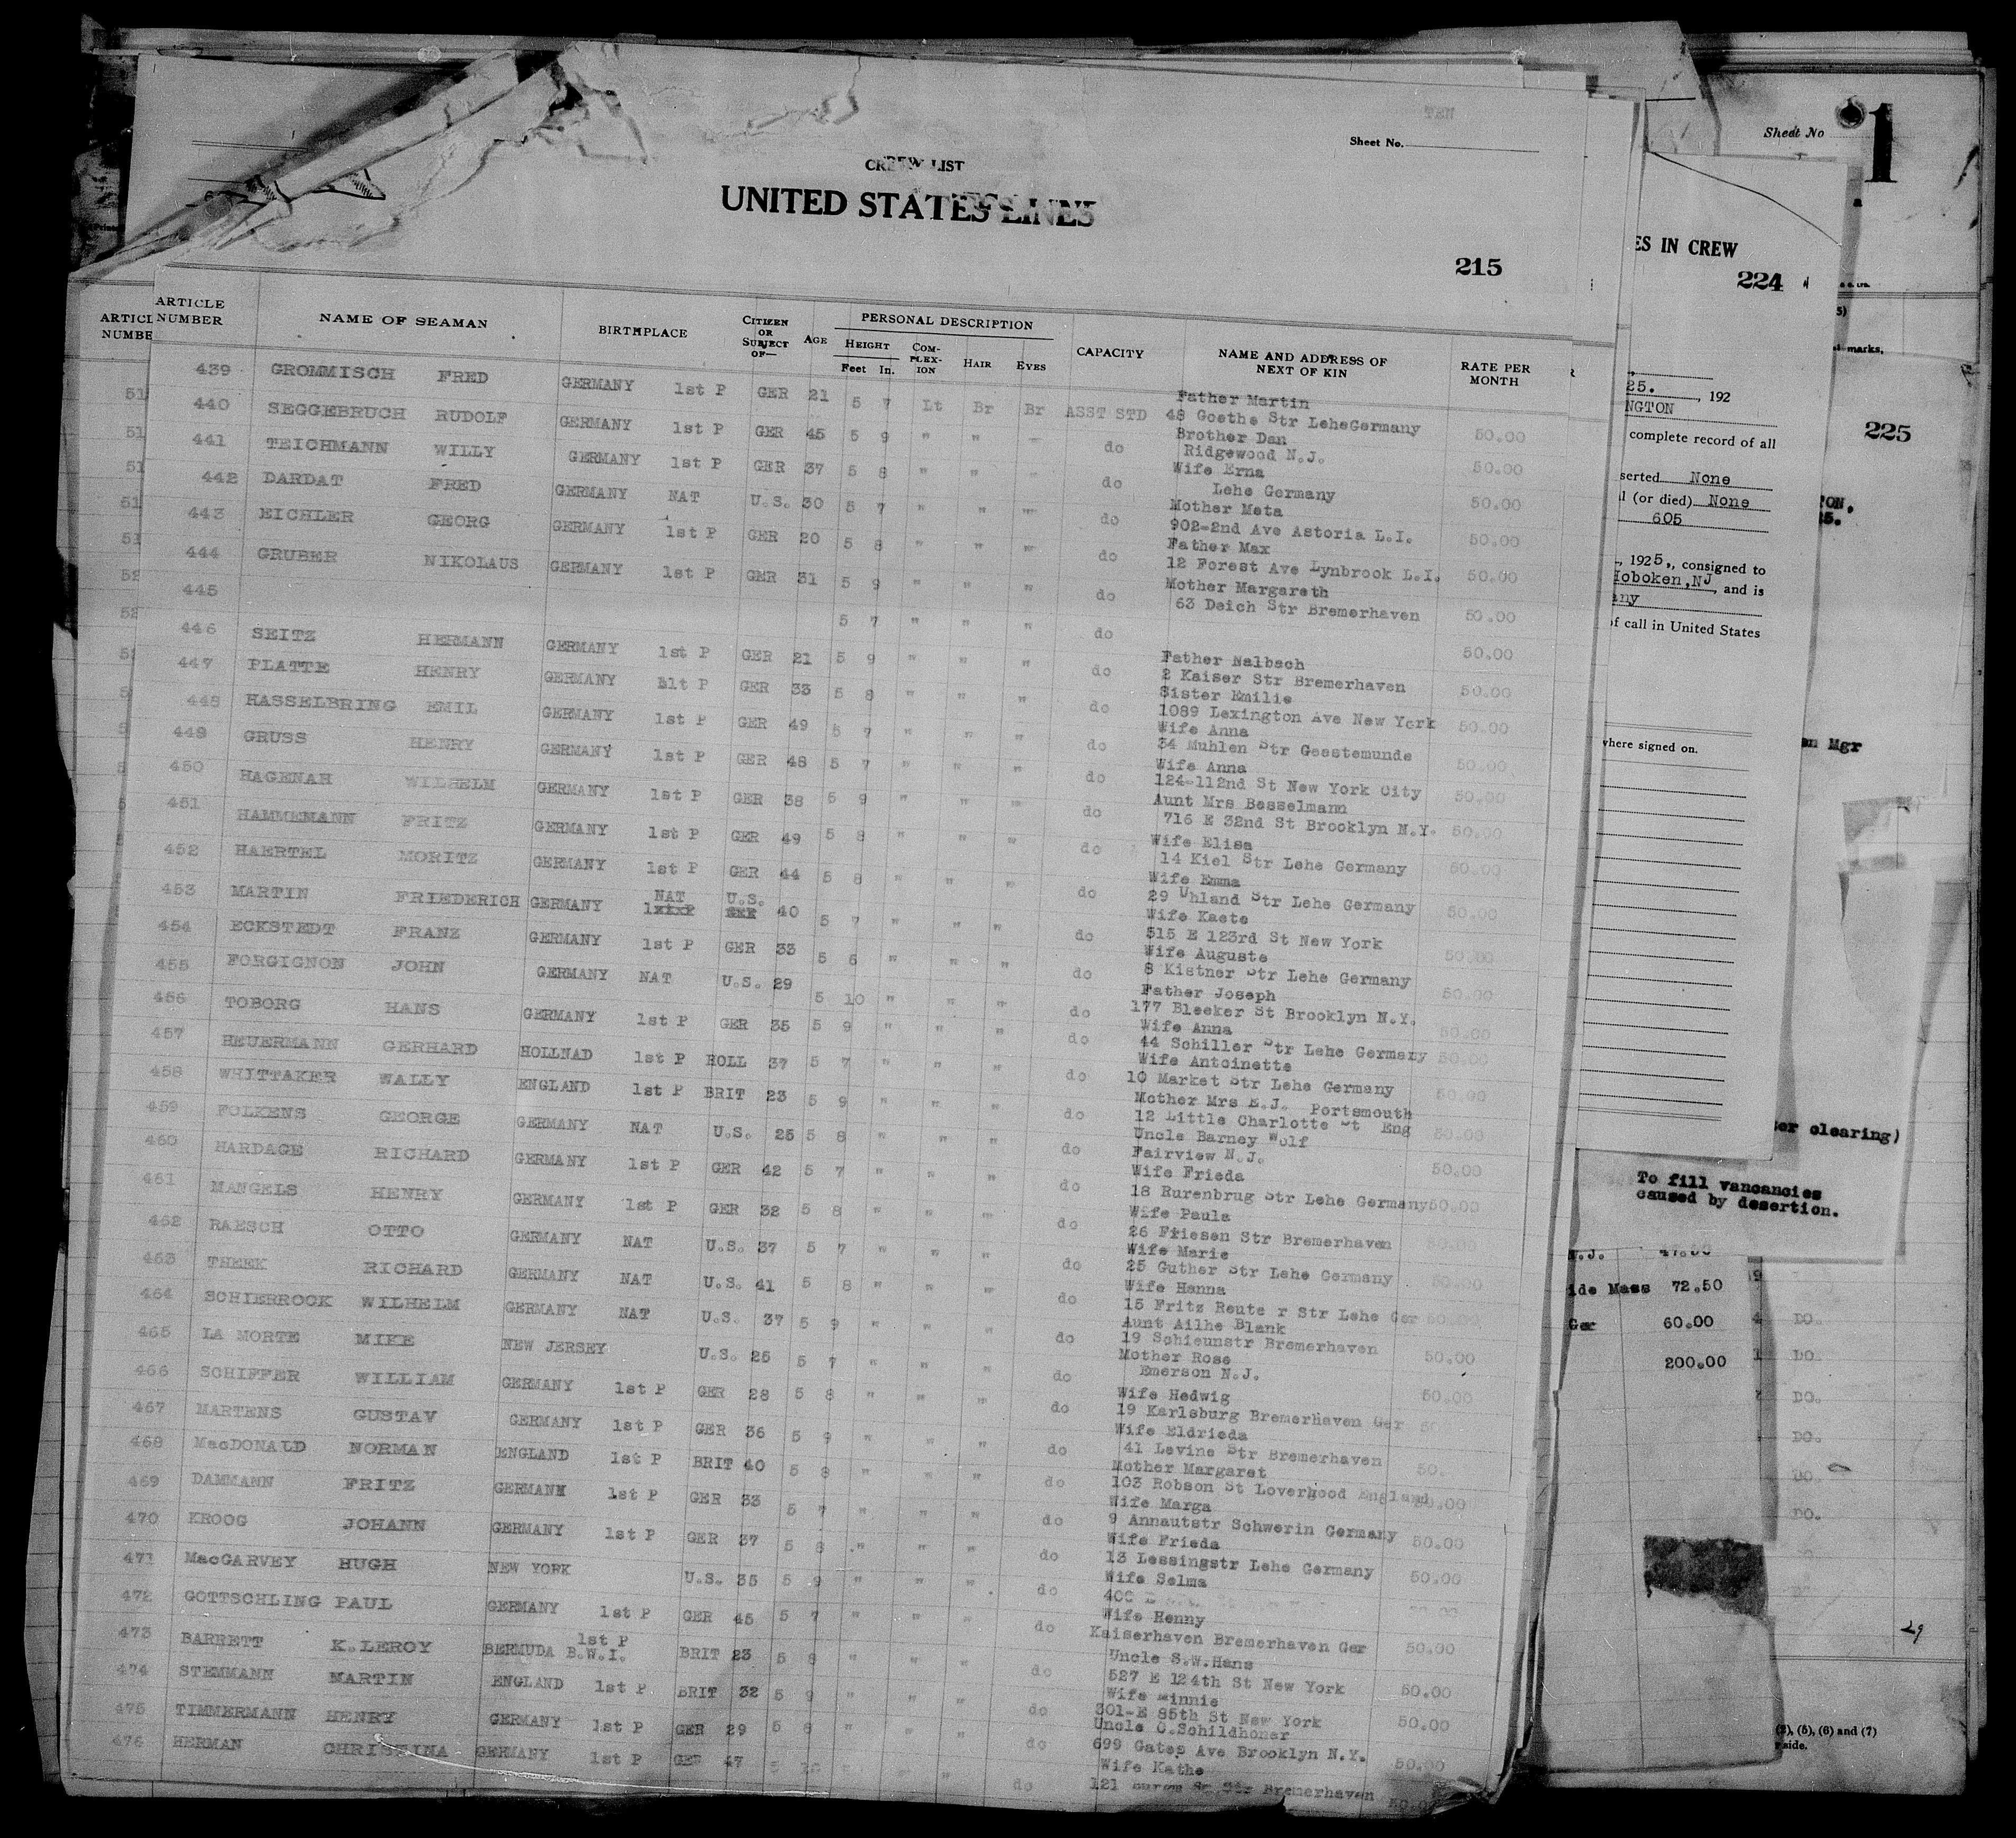 TEN
Sheet No.
CREW LIST
UNITED STATES LINES
215
ARTICLE NUMBER NAME OF SEAMAN BIRTHPLACE CITIZEN OR SUBJECT OF— AGE PERSONAL DESCRIPTION CAPACITY NAME AND ADDRESS OF NEXT OF KIN RATE PER MONTH
HEIGHT Feet In. COMPLEXION HAIR EYES
439 GROMMISCH FRED GERMANY 1st P GER 21 5 7 Lt Br Br ASST STD Father Martin
48 Goethe Str LeheGermany 50.00
440 SEGGEBRUCH RUDOLF GERMANY 1st P GER 45 5 9 " " " do Brother Dan
Ridgewood N.J. 50.00
441 TEICHMANN WILLY GERMANY 1st P GER 37 5 8 " " " do Wife Erna
Lehe Germany 50.00
442 DARDAT FRED GERMANY NAT U.S. 30 5 7 " " " do Mother Meta
902-2nd Ave Astoria L.I. 50.00
443 EICHLER GEORG GERMANY 1st P GER 20 5 8 " " " do Father Max
12 Forest Ave Lynbrook L.I. 50.00
444 GRUBER NIKOLAUS GERMANY 1st P GER 31 5 9 " " " do Mother Margareth
63 Deich Str Bremerhaven 50.00
445 5 7 " " " do 50.00
446 SEITZ HERMANN GERMANY 1st P GER 21 5 9 " " " do Father Nalbach
2 Kaiser Str Bremerhaven 50.00
447 PLATTE HENRY GERMANY 1st P GER 33 5 8 " " " do Sister Emilie
1089 Lexington Ave New York 50.00
448 HASSELBRING EMIL GERMANY 1st P GER 49 5 7 " " " do Wife Anna
34 Muhlen Str Geestemunde 50.00
449 GRUSS HENRY GERMANY 1st P GER 48 5 7 " " " do Wife Anna
124-112nd St New York City 50.00
450 HAGENAH WILHELM GERMANY 1st P GER 38 5 9 " " " do Aunt Mrs Besselmann
716 E 32nd St Brooklyn N.Y. 50.00
451 HAMMEMANN FRITZ GERMANY 1st P GER 49 5 8 " " " do Wife Elisa
14 Kiel Str Lehe Germany 50.00
452 HAERTEL MORITZ GERMANY 1st P GER 44 5 8 " " " do Wife Emma
29 Uhland Str Lehe Germany 50.00
453 MARTIN FRIEDERICH GERMANY NAT U.S. 40 5 7 " " " do Wife Kaete
515 E 123rd St New York 50.00
454 ECKSTEDT FRANZ GERMANY 1st P GER 33 5 6 " " " do Wife Auguste
8 Kistner Str Lehe Germany 50.00
455 FORGIGNON JOHN GERMANY NAT U.S. 29 5 10 " " " do Father Joseph
177 Bleeker St Brooklyn N.Y. 50.00
456 TOBORG HANS GERMANY 1st P GER 35 5 9 " " " do Wife Anna
44 Schiller Str Lehe Germany 50.00
457 HEUERMANN GERHARD HOLLNAD 1st P HOLL 37 5 7 " " " do Wife Antoinette
10 Market Str Lehe Germany 50.00
458 WHITTAKER WALLY ENGLAND 1st P BRIT 23 5 9 " " " do Mother Mrs E.J. Portsmouth
12 Little Charlotte St Eng 50.00
459 FOLKENS GEORGE GERMANY NAT U.S. 25 5 8 " " " do Uncle Barney Wolf
Fairview N.J. 50.00
460 HARDAGE RICHARD GERMANY 1st P GER 42 5 7 " " " do Wife Frieda
18 Rurenbrug Str Lehe Germany 50.00
461 MANGELS HENRY GERMANY 1st P GER 32 5 8 " " " do Wife Paula
26 Friesen Str Bremerhaven 50.00
462 RAESCH OTTO GERMANY NAT U.S. 37 5 7 " " " do Wife Marie
25 Guther Str Lehe Germany 50.00
463 THEEK RICHARD GERMANY NAT U.S. 41 5 8 " " " do Wife Hanna
15 Fritz Reute r Str Lehe Ger 50.00
464 SCHIERROCK WILHELM GERMANY NAT U.S. 37 5 9 " " " do Aunt Ailhe Blank
19 Schieunstr Bremerhaven 50.00
465 LA MORTE MIKE NEW JERSEY U.S. 25 5 7 " " " do Mother Rose
Emerson N.J. 50.00
466 SCHIFFER WILLIAM GERMANY 1st P GER 28 5 8 " " " do Wife Hedwig
19 Karlsburg Bremerhaven Ger 50
467 MARTENS GUSTAV GERMANY 1st P GER 36 5 9 " " " do Wife Eldrieda
41 Levine Str Bremerhaven 50.
468 MacDONALD NORMAN ENGLAND 1st P BRIT 40 5 8 " " " do Mother Margaret
103 Robson St Loverhood England 50.00
469 DAMMANN FRITZ GERMANY 1st P GER 33 5 7 " " " do Wife Marga
9 Annautstr Schwerin Germany 50.00
470 KROOG JOHANN GERMANY 1st P GER 37 5 8 " " " do Wife Frieda
13 Lessingstr Lehe Germany 50.00
471 MacGARVEY HUGH NEW YORK U.S. 35 5 9 " " " do Wife Selma
400
472 GOTTSCHLING PAUL GERMANY 1st P GER 45 5 7 " " " do Wife Henny
Kaiserhaven Bremerhaven Ger 50.00
473 BARRETT K.LEROY BERMUDA B.W.I. 1st P BRIT 23 5 8 " " " do Uncle S.W.Hans
527 E 124th St New York 50.00
474 STEMMANN MARTIN ENGLAND 1st P BRIT 32 5 9 " " " do Wife Minnie
301-E 85th St New York 50.00
475 TIMMERMANN HENRY GERMANY 1st P GER 29 5 8 " " " do Uncle C.Schildhoner
699 Gates Ave Brooklyn N.Y. 50.00
476 HERMAN CHRISTINA GERMANY 1st P GER 47 5 do Wife Kathe
121 Str Bremerhaven 50.00
ARTICL
NUMBE
Sheet No
1
ES IN CREW
224
25. , 192
NGTON
complete record of all
serted None
l (or died) None
605
, 1925,, consigned to
Hoboken,NJ , and is
any
of call in United States
where signed on.
marks,
225
TON,
25.
an Mgr
ter clearing)
To fill vancancies
caused by desertion.
N.J. 47.50
ide Mass 72.50
Ger 60.00
200.00
DO.
DO.
DO.
DO.
DO.
DO.
29
(3), (5), (6) and (7)
side.